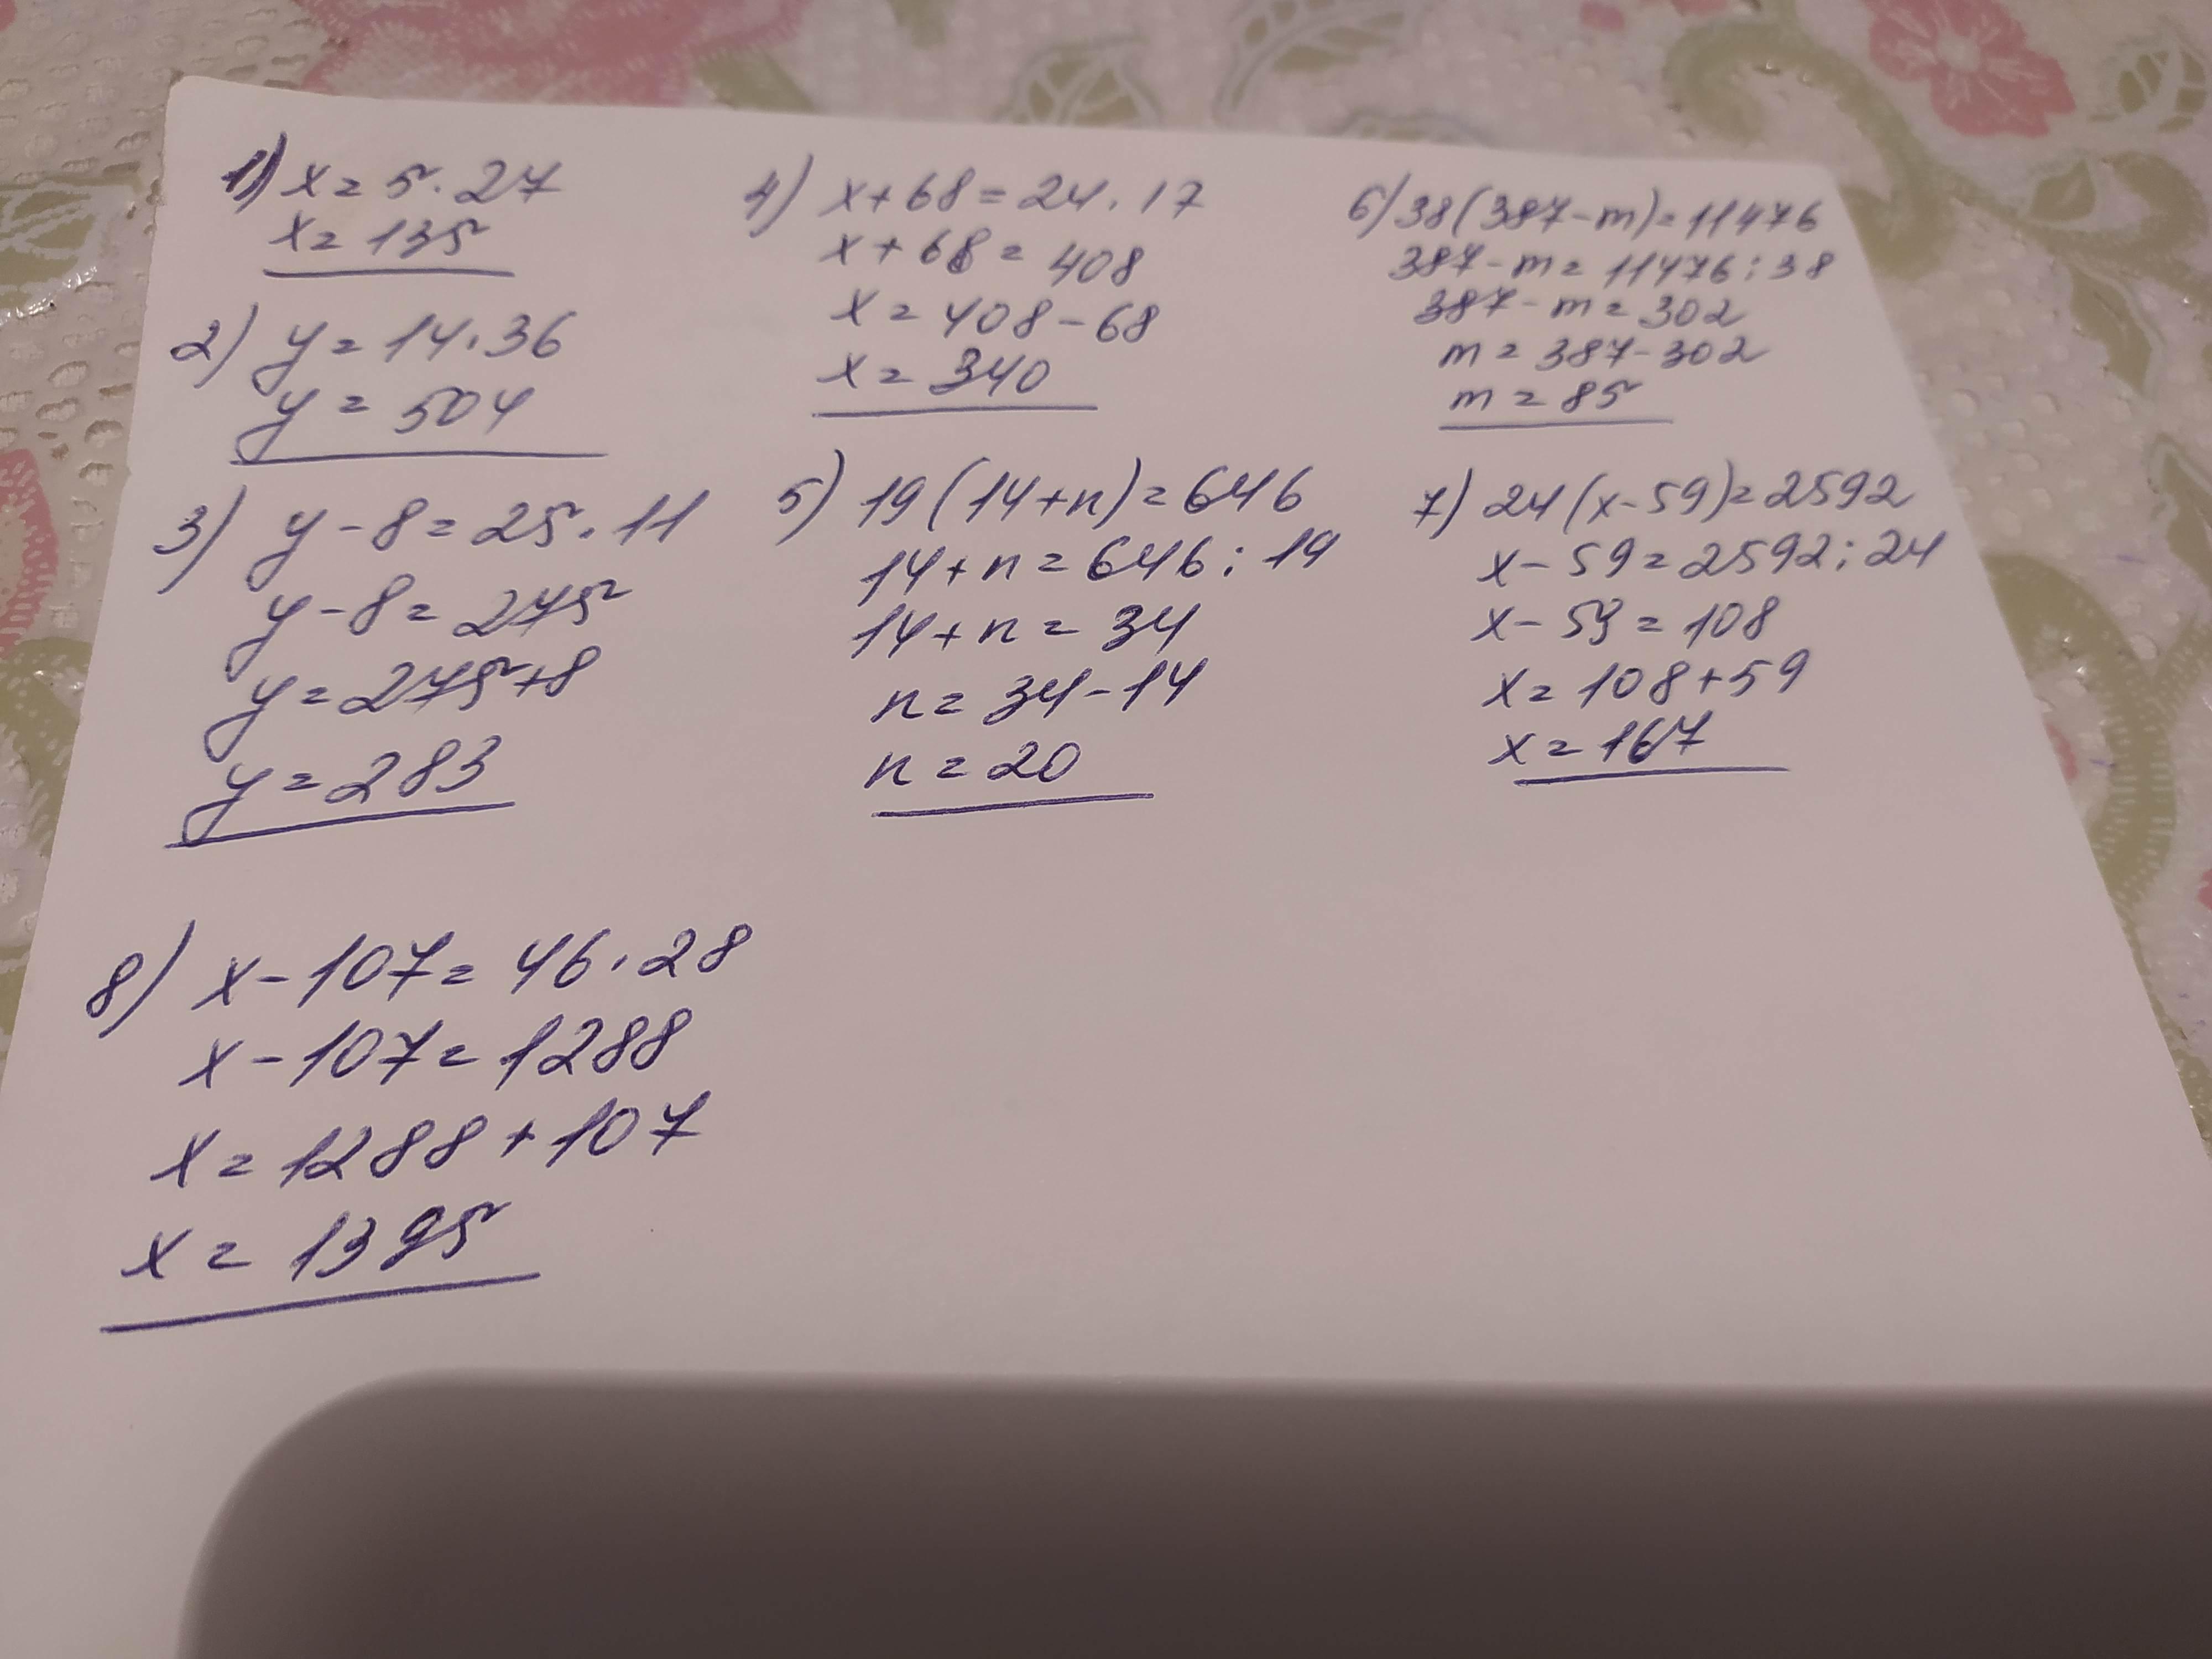 1) x = 5 · 27
x = 135
2) y = 14 · 36
y = 504
3) y - 8 = 25 · 11
y - 8 = 275
y = 275 + 8
y = 283
4) x + 68 = 24 · 17
x + 68 = 408
x = 408 - 68
x = 340
5) 19 (14 + n) = 646
14 + n = 646 : 19
14 + n = 34
n = 34 - 14
n = 20
6) 38 (387 - m) = 11476
387 - m = 11476 : 38
387 - m = 302
m = 387 - 302
m = 85
7) 24 (x - 59) = 2592
x - 59 = 2592 : 24
x - 59 = 108
x = 108 + 59
x = 167
8) x - 107 = 46 · 28
x - 107 = 1288
x = 1288 + 107
x = 1395